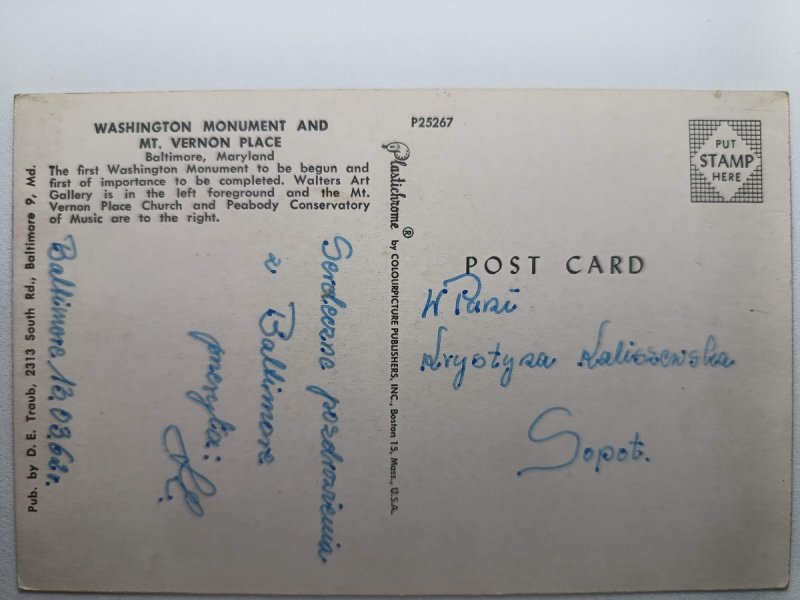 WASHINGTON MONUMENT AND
MT. VERNON PLACE
Baltimore, Maryland
The first Washington Monument to be begun and
first of importance to be completed. Walters Art
Gallery is in the left foreground and the Mt.
Vernon Place Church and Peabody Conservatory
of Music are to the right.
Pub. by D. E. Traub, 2313 South Rd., Baltimore 9, Md.
Baltimore 13.03.62r.
Serdeczne pozdrowienia
z Baltimore
P25267
Plastichrome ® by COLOURPICTURE PUBLISHERS, INC., Boston 15, Mass., U.S.A.
PUT
STAMP
HERE
POST CARD
W. Pani
Krystyna Kaliszewska
Sopot.